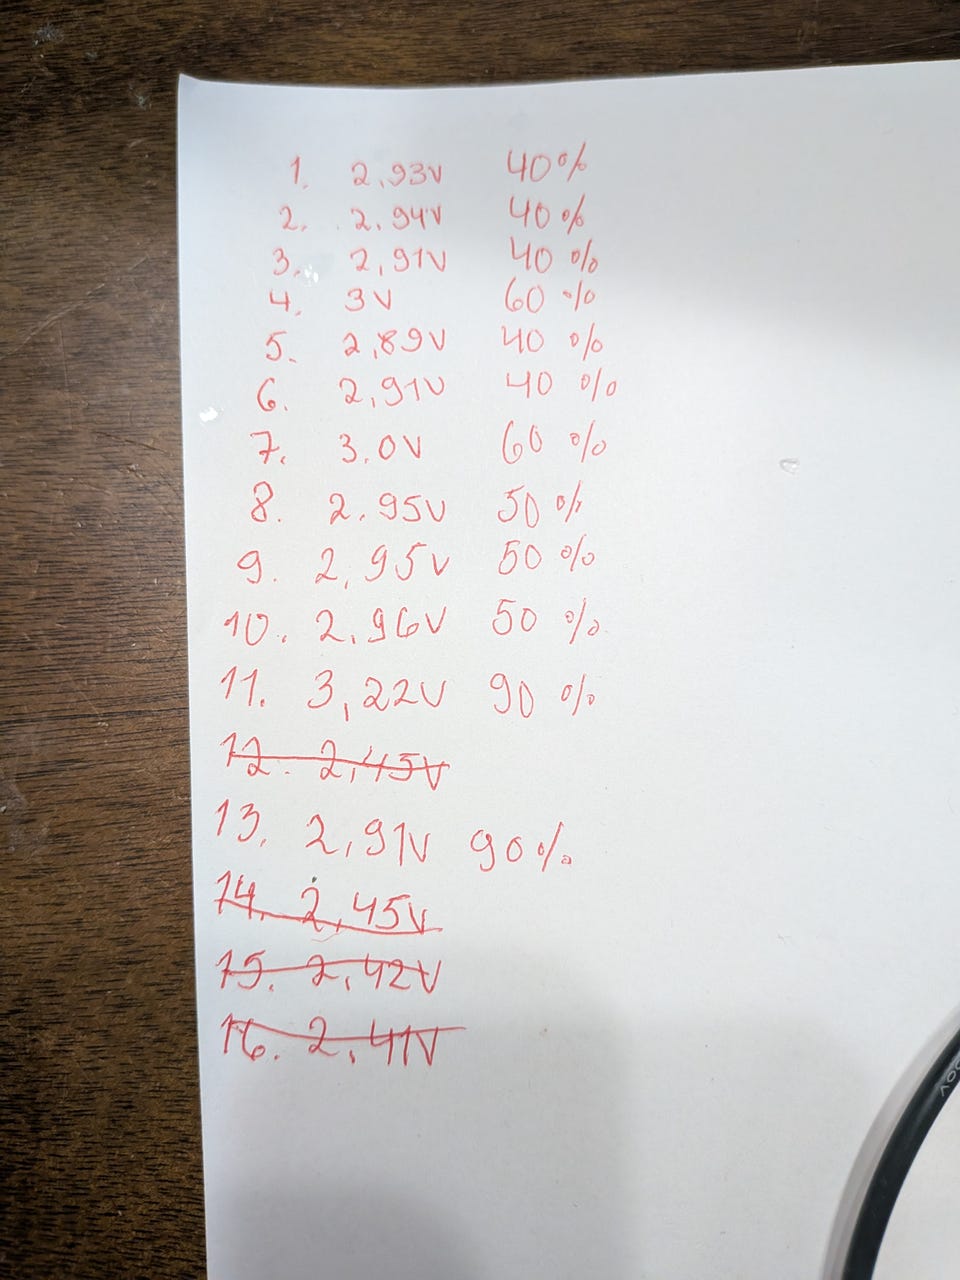 1. 2,93V 40%
2. 2.94V 40%
3. 2,91V 40%
4. 3V 60%
5. 2,89V 40%
6. 2,91V 40%
7. 3.0V 60%
8. 2.95V 50%
9. 2,95V 50%
10. 2,96V 50%
11. 3,22V 90%
12. 2,45V
13. 2,91V 90%
14. 2,45V
15. 2,42V
16. 2,41V